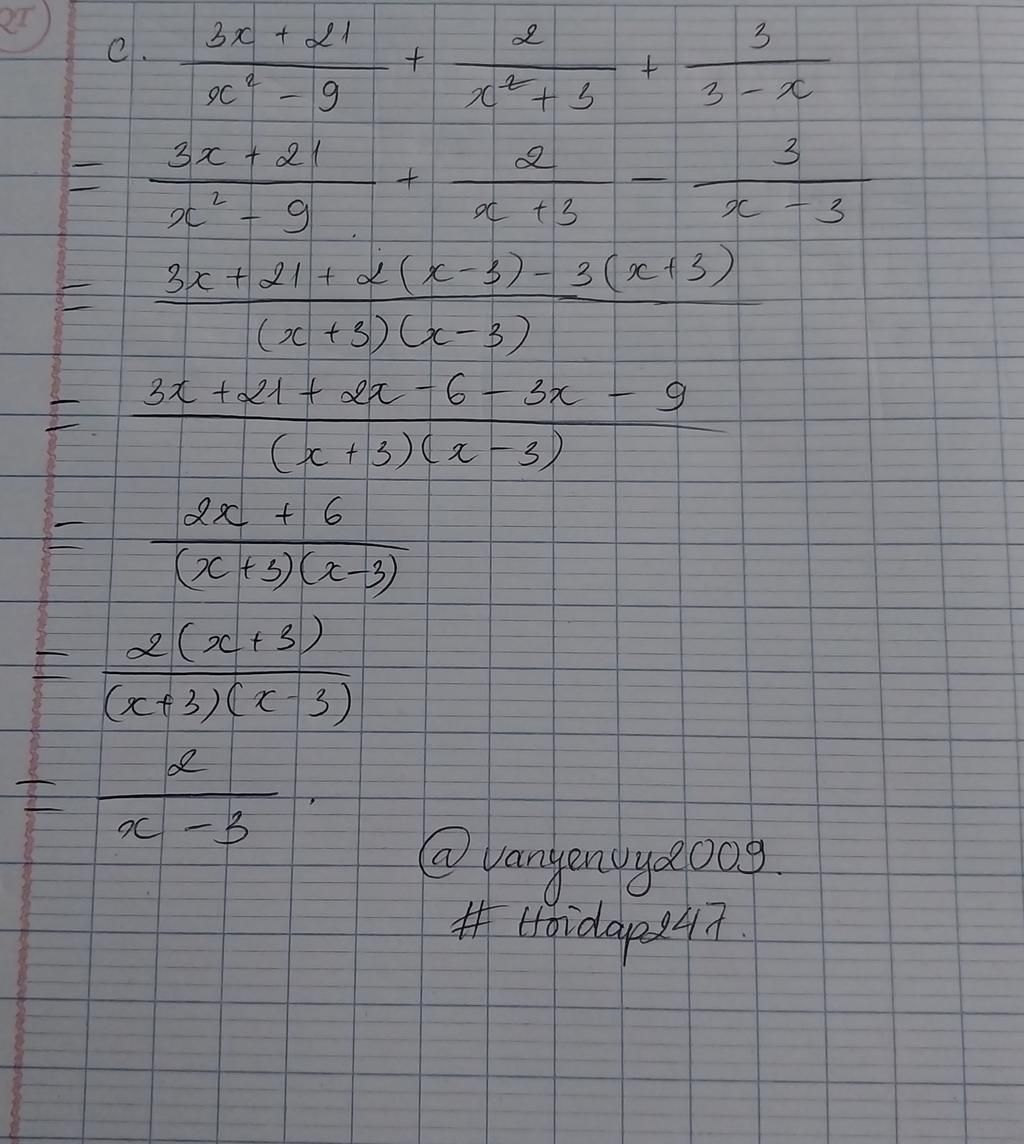 c. (3x + 21)/(x² - 9) + 2/(x² + 3) + 3/(3 - x)
= (3x + 21)/(x² - 9) + 2/(x + 3) - 3/(x - 3)
= (3x + 21 + 2(x - 3) - 3(x + 3))/((x + 3)(x - 3))
= (3x + 21 + 2x - 6 - 3x - 9)/((x + 3)(x - 3))
= (2x + 6)/((x + 3)(x - 3))
= (2(x + 3))/((x + 3)(x - 3))
= 2/(x - 3).
@vanyenvy2009.
# Hoidap247.